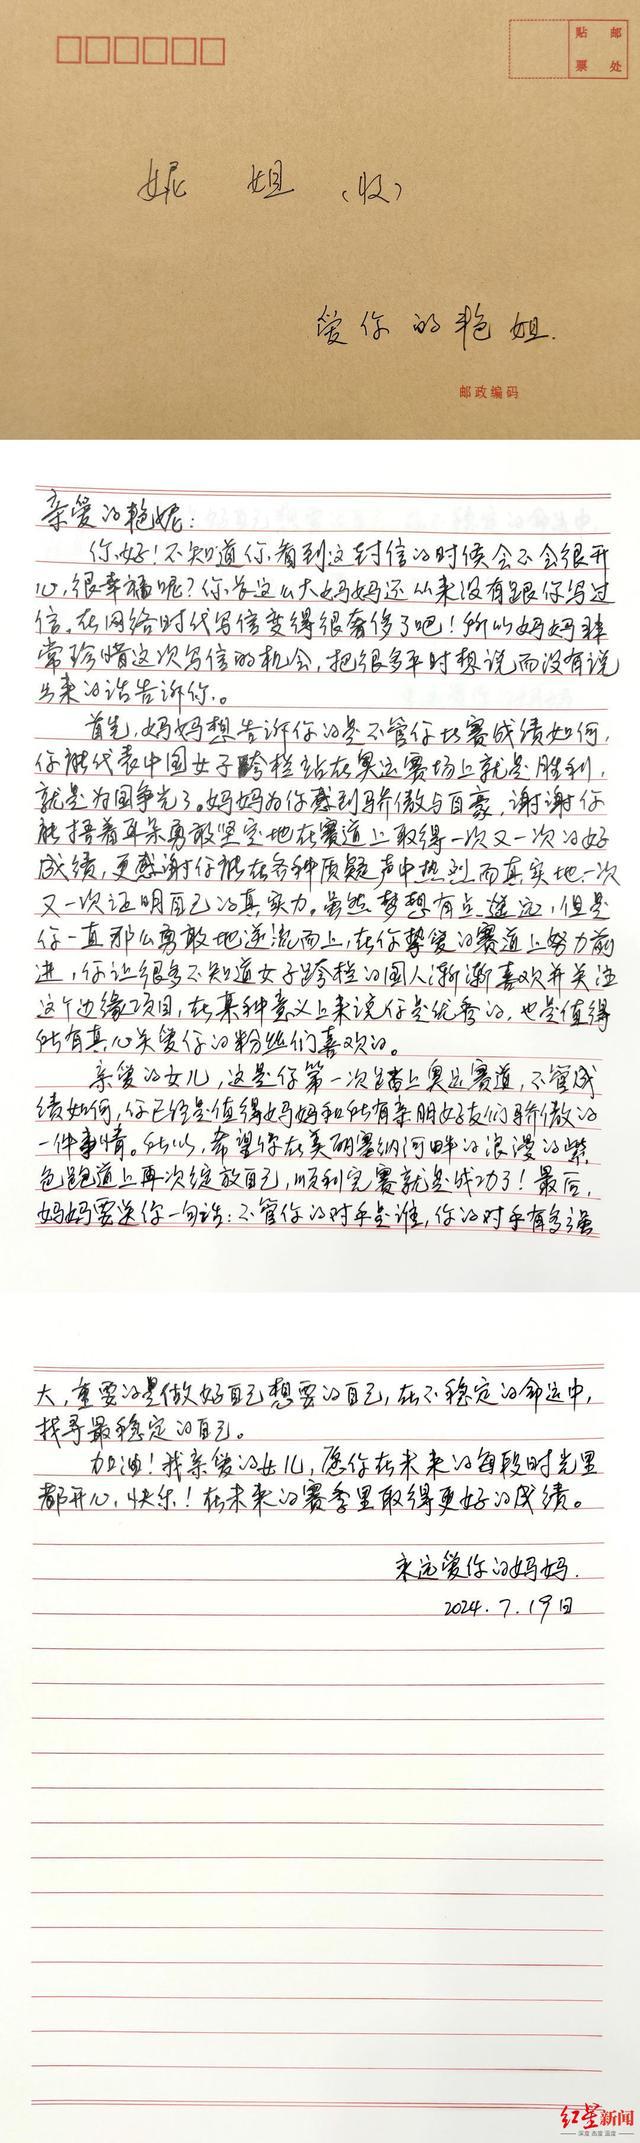 贴 邮
票 处
妮 姐 (收)
爱你的艳姐.
邮政编码
亲爱的艳妮：
你好！不知道你看到这封信的时候会不会很开
心，很幸福呢？你长这么大妈妈还从来没有跟你写过
信，在网络时代写信变得很奢侈了吧！所以妈妈非
常珍惜这次写信的机会，把很多平时想说而没有说
出来的话告诉你。
首先，妈妈想告诉你的是不管你比赛成绩如何，
你能代表中国女子跨栏站在奥运赛场上就是胜利，
就是为国争光了。妈妈为你感到骄傲与自豪，谢谢你
能捂着耳朵勇敢坚定地在赛道上取得一次又一次的好
成绩，更感谢你能在各种质疑声中热烈而真实地一次
又一次证明自己的真实力。虽然梦想有点遥远，但是
你一直那么勇敢地逆流而上，在你挚爱的赛道上努力前
进，你让很多不知道女子跨栏的国人渐渐喜欢并关注
这个边缘项目，在某种意义上来说你是优秀的，也是值得
所有真心关爱你的粉丝们喜欢的。
亲爱的女儿，这是你第一次踏上奥运赛道，不管成
绩如何，你已经是值得妈妈和所有亲朋好友们骄傲的
一件事情。所以，希望你在美丽塞纳河畔的浪漫的紫
色跑道上再次绽放自己，顺利完赛就是成功了！最后，
妈妈要送你一句话：不管你的对手是谁，你的对手有多强
大，重要的是做好自己想要的自己，在不稳定的命运中，
找寻最稳定的自己。
加油！我亲爱的女儿，愿你在未来的每段时光里
都开心，快乐！在未来的赛季里取得更好的成绩。
永远爱你的妈妈.
2024.7.19日
红星新闻
深度 态度 温度